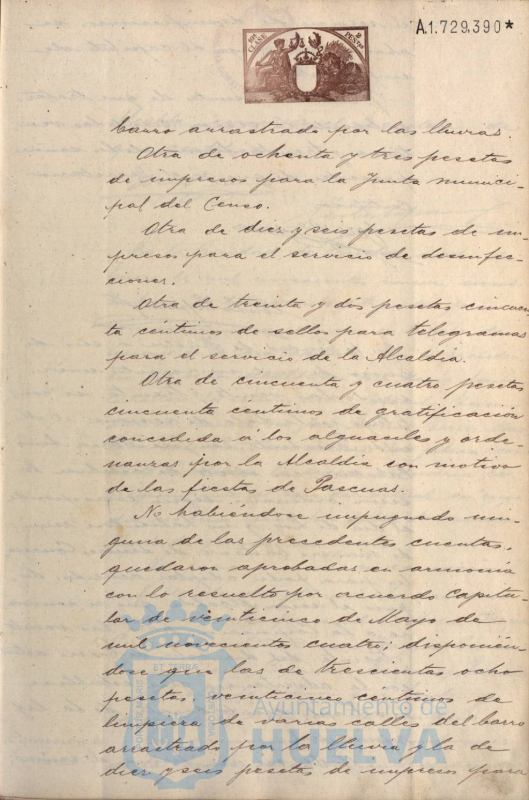 A.1.729.390*
CLASE
2
PESETAS
barro arrastrado por las lluvias.
Otra de ochenta y tres pesetas
de impresos para la Junta munici
pal del Censo.
Otra de diez y seis pesetas de im
presos para el servicio de desinfec-
ciones.
Otra de treinta y dos pesetas cincuen
ta centimos de sellos para telegramas
para el servicio de la Alcaldia.
Otra de cincuenta y cuatro pesetas
cincuenta céntimos de gratificación
concedida á los alguaciles y orde-
nanzas por la Alcaldia con motivo
de las fiestas de Pascuas.
No habiéndose impugnado nin
guna de las precedentes cuentas,
quedaron aprobadas en armonía
con lo resuelto por acuerdo capitu-
lar de veinticinco de Mayo de
mil novecientos cuatro; disponién-
dose que las de trescientas ocho
pesetas, veinticinco centimos de
limpieza de varias calles del barro
arrastrado por la lluvia y la de
diez y seis pesetas de impresos para
Ayuntamiento de
HUELVA